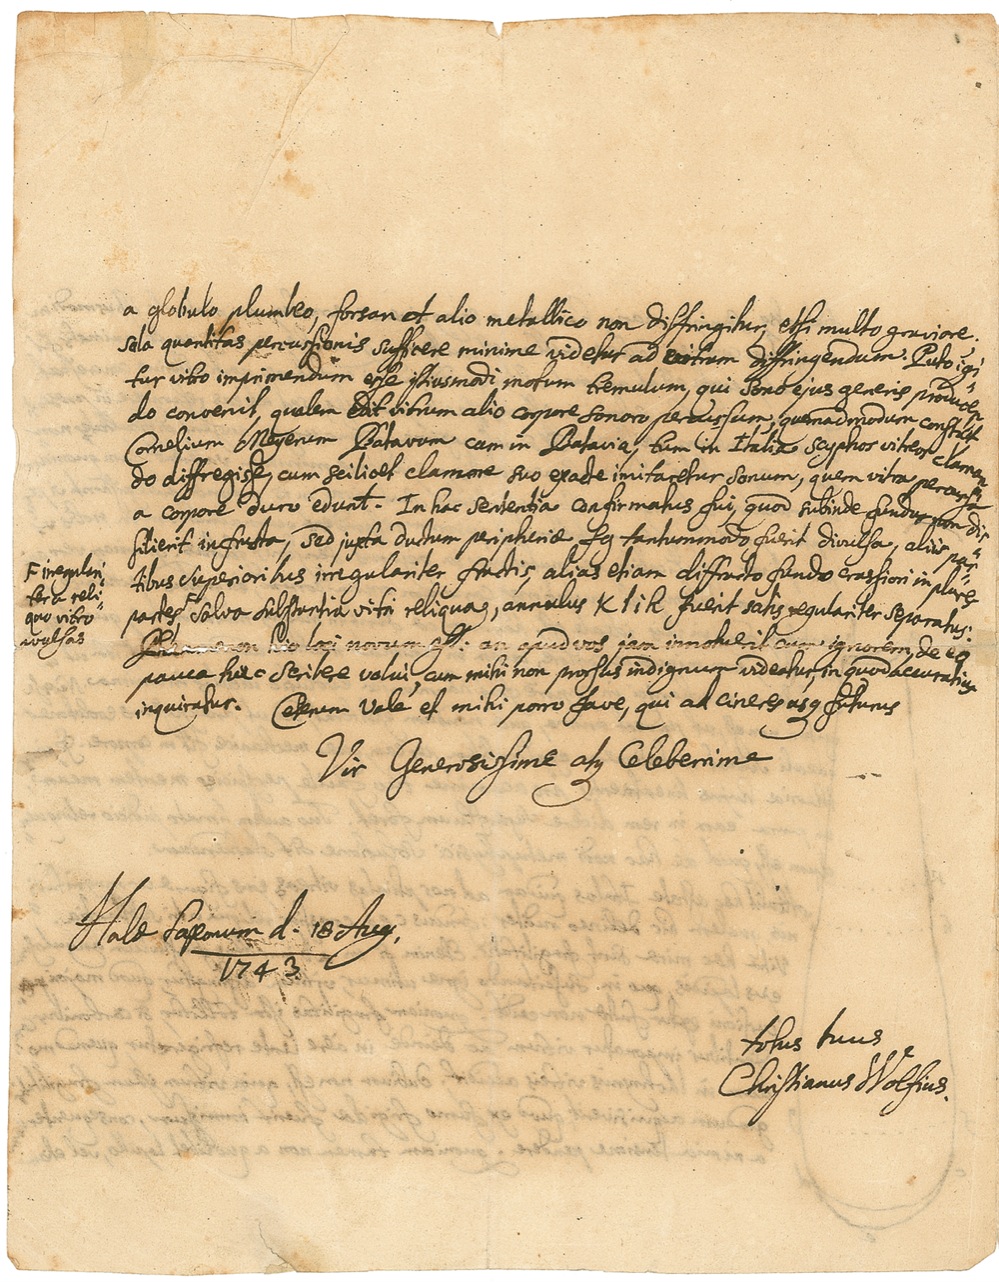 a globulo plumbeo, forsan et alio metallico non diffringitur, etsi multo graviore.
Sola quantitas percussionis sufficere minime videtur ad vitrum diffringendum. Puto igi-
tur vitro imprimendum esse istiusmodi motum tremulum, qui sono ejus generis producen-
do convenit, qualem edit vitrum alio corpore sonoro percussum, quemadmodum constat
Cornelium Meyerum Batavum cum in Batavia, tum in Italia scyphos vitreos claman-
do diffregisse, cum scilicet clamore suo exacte imitaretur sonum, quem vitra percussa
a corpore duro edunt. In hac sententia confirmatus fui, quod subinde fundus non dis-
silierit in frusta, sed juxta ductum peripheriæ fg tantummodo fuerit divulsa, aliis par-
tibus superioribus irregulariter fractis, alias etiam diffracto fundo crassiori in plures
partes F salva substantia vitri reliqua, annulus KliK fuerit satis regulariter separatus.
F irregulari-
ter a reli-
quo vitro
avulsas
Phænomenon hic loci novum est: an apud vos jam innotuerit cum ignorem, de eo
pauca hæc scribere volui, cum mihi non prorsus indignum videatur, in quod accuratius
inquiratur. Ceterum vale et mihi porro fave, qui ad cineres usq futurus
Vir Generosissime atq Celeberrime
Halæ Saxonum d. 18 Aug.
1743.
totus tuus
Christianus Wolfius.